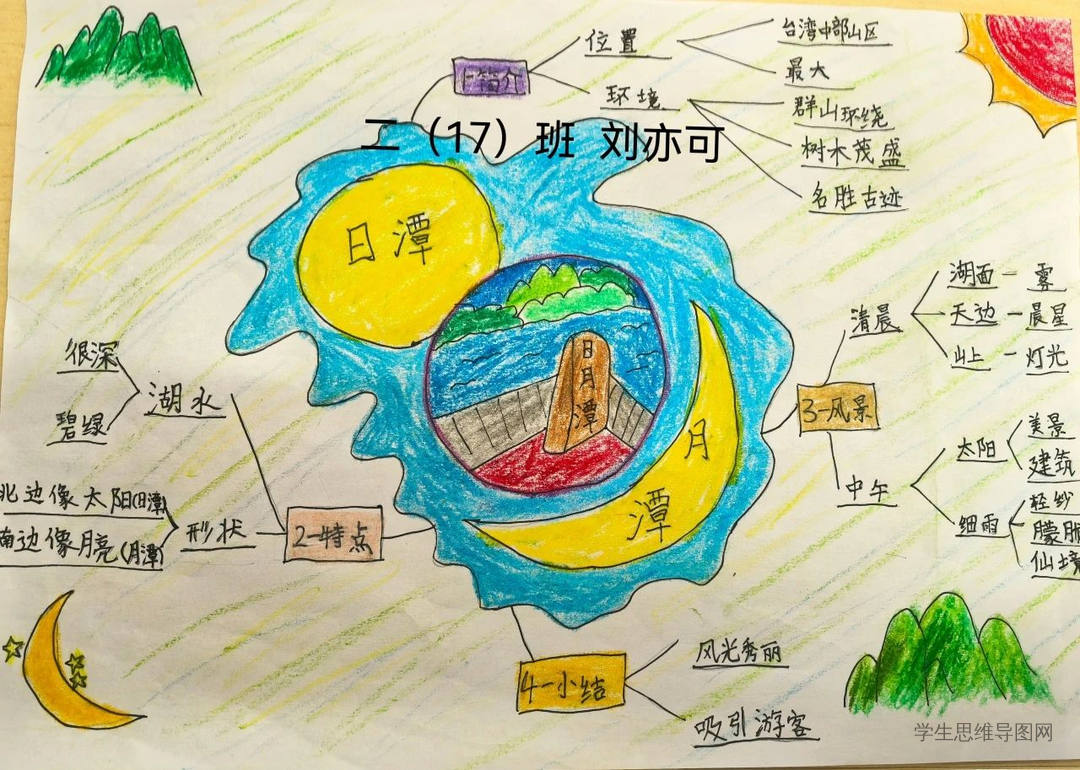 二（17）班 刘亦可
1-简介
位置
台湾中部山区
最大
环境
群山环绕
树木茂盛
名胜古迹
日潭
日月潭
月潭
2-特点
湖水
很深
碧绿
形状
北边像太阳(日潭)
南边像月亮(月潭)
3-风景
清晨
湖面一雾
天边一晨星
山上一灯光
中午
太阳
美景
建筑
细雨
轻纱
朦胧
仙境
4-小结
风光秀丽
吸引游客
学生思维导图网